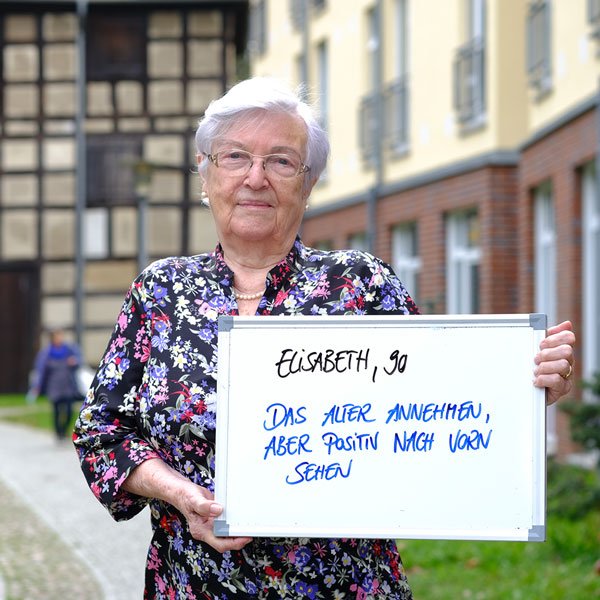 ELISABETH, 90
DAS ALTER ANNEHMEN,
ABER POSITIV NACH VORN
SEHEN